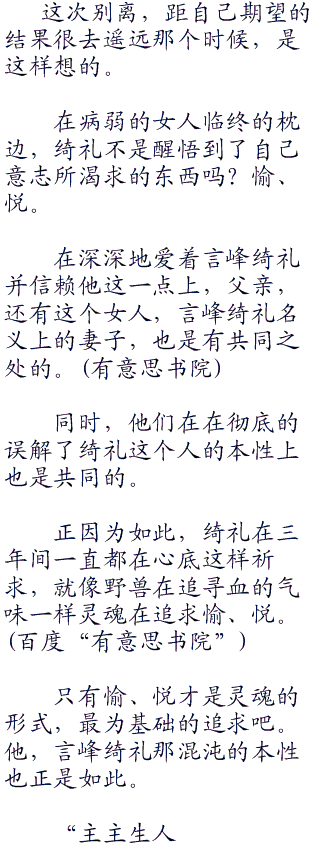 这次别离，距自己期望的
结果很去遥远那个时候，是
这样想的。
在病弱的女人临终的枕
边，绮礼不是醒悟到了自己
意志所渴求的东西吗？愉、
悦。
在深深地爱着言峰绮礼
并信赖他这一点上，父亲，
还有这个女人，言峰绮礼名
义上的妻子，也是有共同之
处的。(有意思书院)
同时，他们在在彻底的
误解了绮礼这个人的本性上
也是共同的。
正因为如此，绮礼在三
年间一直都在心底这样祈
求，就像野兽在追寻血的气
味一样灵魂在追求愉、悦。
(百度“有意思书院”)
只有愉、悦才是灵魂的
形式，最为基础的追求吧。
他，言峰绮礼那混沌的本性
也正是如此。
“主主生人